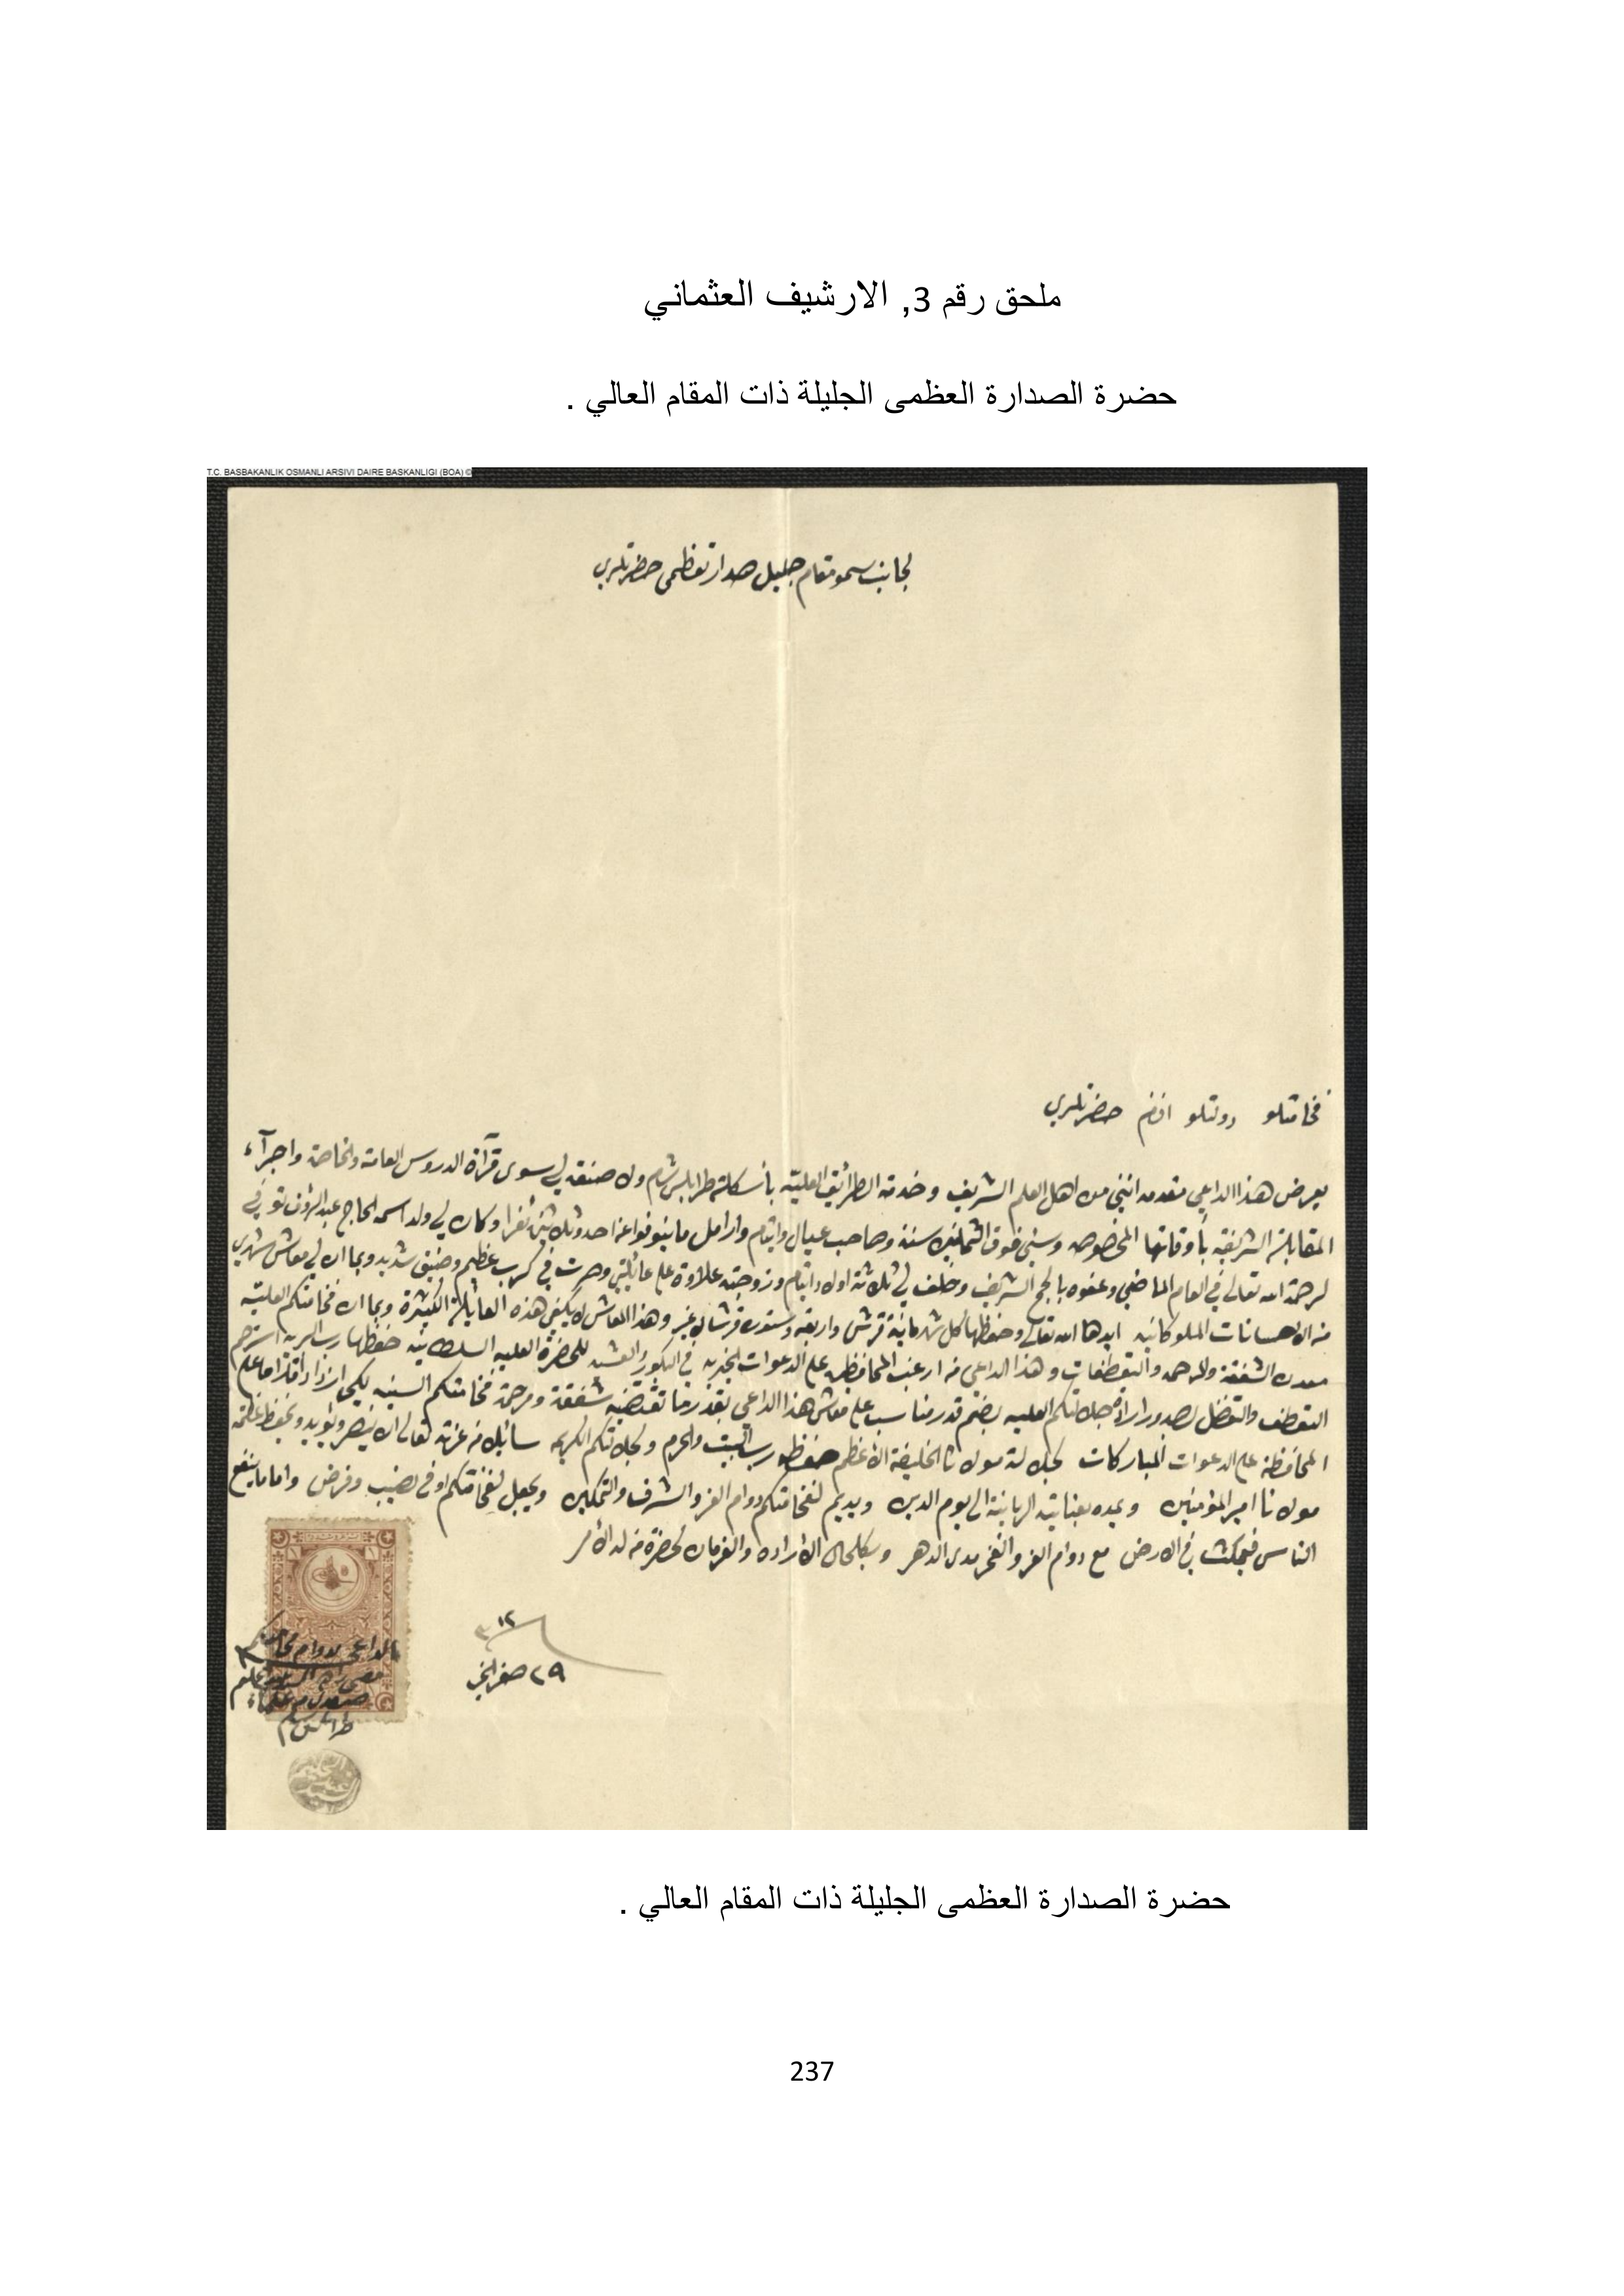 ملحق رقم 3, الارشيف العثماني
حضرة الصدارة العظمى الجليلة ذات المقام العالي .
T.C. BASBAKANLIK OSMANLI ARSIVI DAIRE BASKANLIGI (BOA) ©
لجانب سمو مقام جليل صدارتعظمى حضرتلري
فخامتلو دولتلو افندم حضرتلري
يعرض هذا الداعي مقدمه انني من اهل العلم الشريف وخدمة الطرائق العلية بأسكلة طرابلس شام ولا صنعة لي سوى قرآة الدروس العامة والخاصة واجرآء
المقابلة الشريفة بأوقاتها المخصوصه وسني فوق الثمانين سنة وصاحب عيال وايتام وارامل ما ينوفوا عن احد وثلاثين نفرا وكان لي ولد اسمه الحاج عبد الرؤف توفي
لرحمة الله تعالى في العام الماضي وعفوه بالحج الشريف وخلف لي ثلاثة اولاد ايتام وزوجته علاوة على عائلتي وصرت في كرب عظيم وضيق شديد وبما ان لي معاش شهري
من الاحسانات الملوكانيه ايدها الله تعالى وحفظها كل شهر مائة قرش واربعة وستون قرشا لا غير وهذا المعاش لا يكفي هذه العائلة الكثيرة وبما ان فخامتكم العلية
معدن الشفقة والمرحمه والتعطفات وهذا الداعي من ارغب المحافظين على الدعوات الخيريه في البكور والعشيه للحضرة العليه السلطانيه حفظها رب البريه استرحم
التعطف والتفضل لصدور ارادة جلالتكم العليه بضم قدر مناسب على معاش هذا الداعي بقدر ما تقتضيه شفقة ومرحمة فخامتكم السنيه لكي ازداد
المحافظة على الدعوات المباركات لجلالة مولانا الخليفة الاعظم حفظه رب البيت والحرم ولجلالتكم الكريمه سائلا من عزته تعالى ان ينصر ويؤيد ويحفظ
مولانا امير المؤمنين ويمده بعنايته الربانية الى يوم الدين ويديم لفخامتكم دوام العز والشرف والتمكين ويجعل لفخامتكم اوفى نصيب وفرض واما ما ينفع
الناس فيمكث في الارض مع دوام العز والفخر مدى الدهر وبكل حال الارادة والفرمان لحضرة من له الأمر
٢٩ صفر الخير
الداعي بدوام
طرابلس شام
حضرة الصدارة العظمى الجليلة ذات المقام العالي .
237